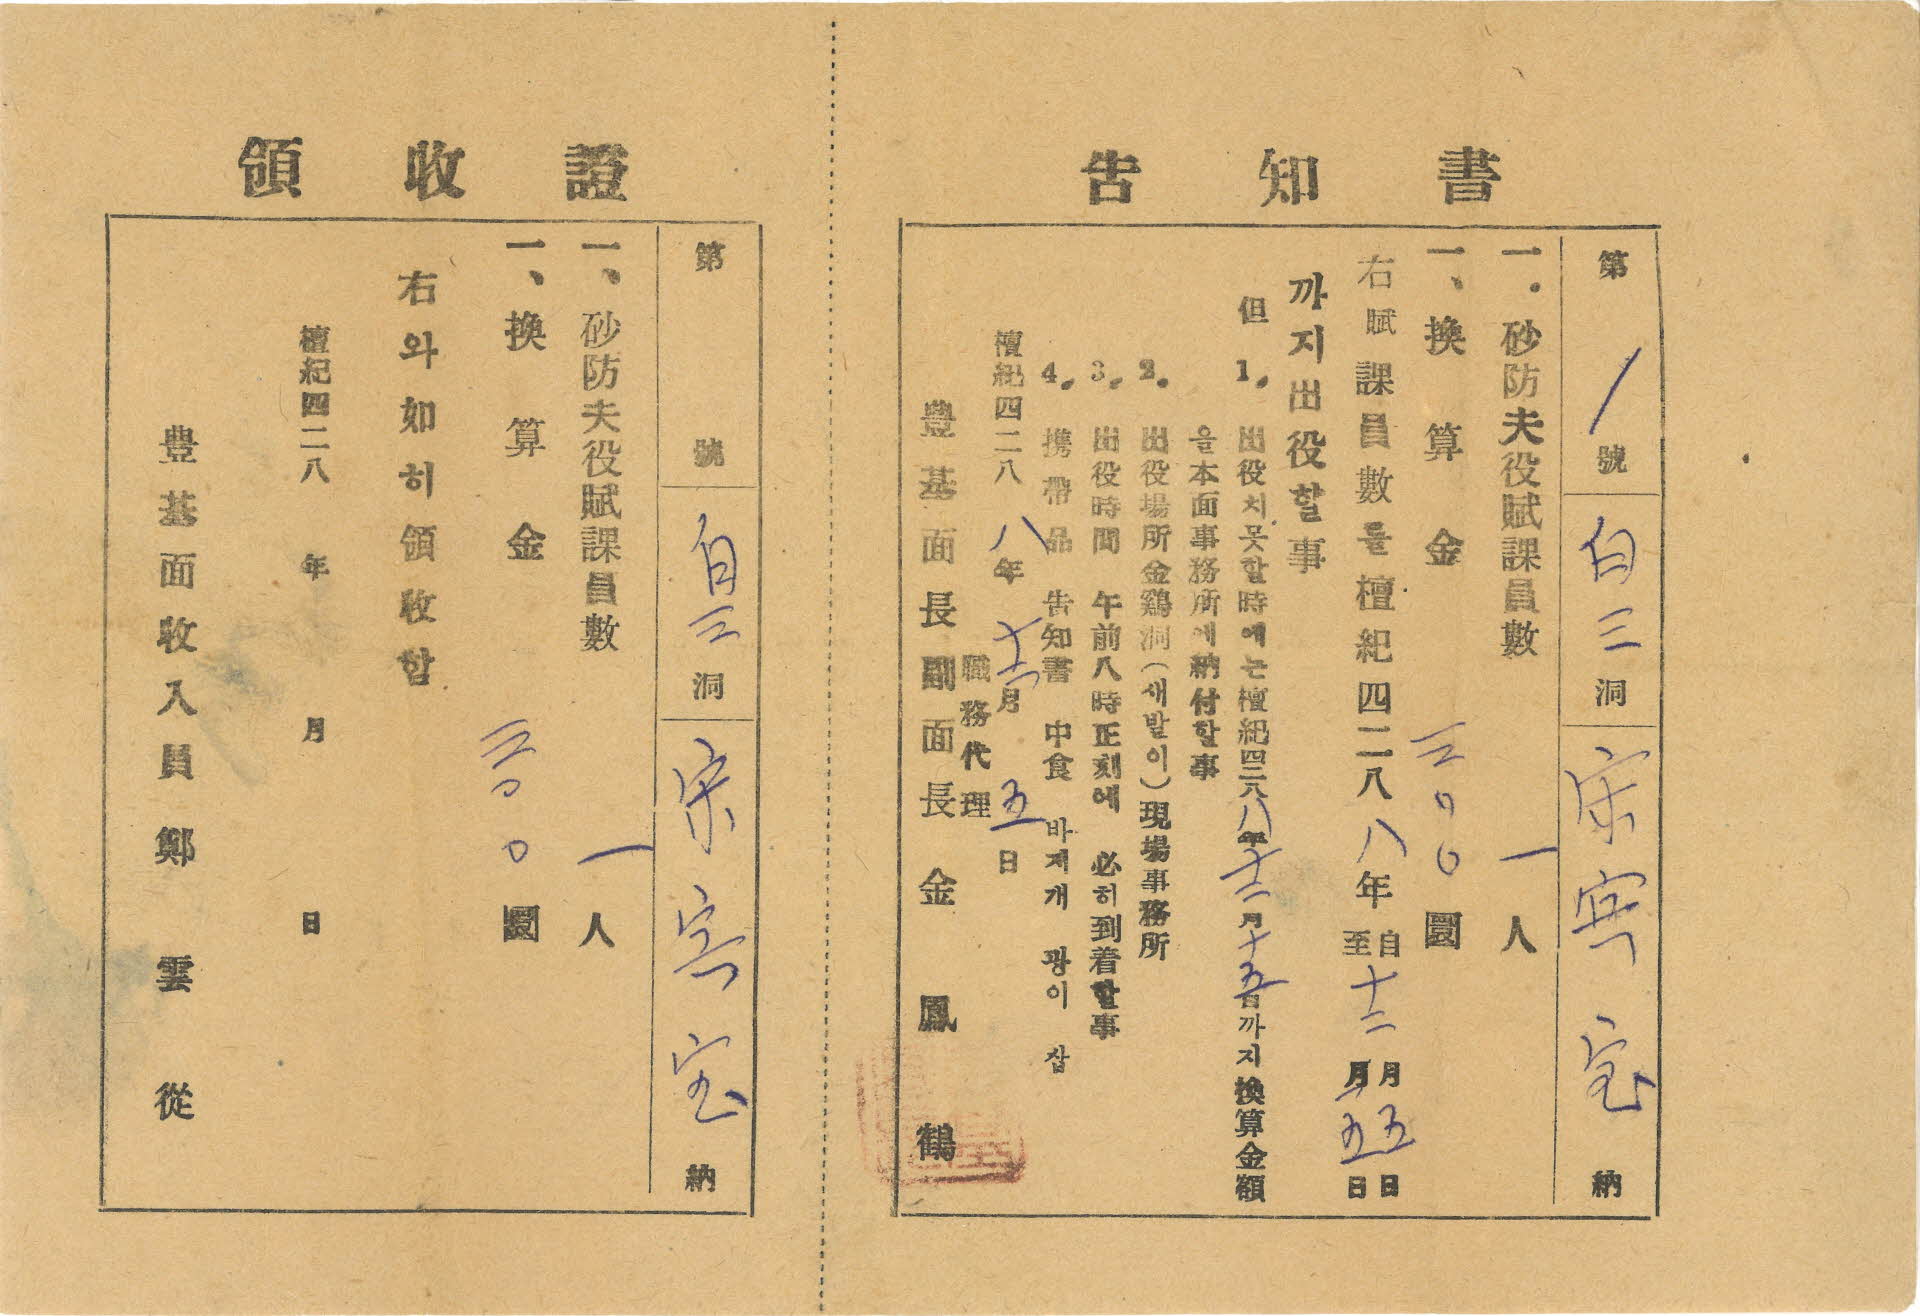 告知書
第 / 號 白三洞 宋寅宅 納
一. 砂防夫役賦課員數 一人
一、換算金 三〇〇圜
右賦課員數를檀紀四二八八年 自十二月五日
至 月五日
까지出役할事
但 1. 出役치못할時에는檀紀四二八八年十二月十五日까지換算金額
을本面事務所에納付할事
2. 出役場所金鷄洞(새발이)現場事務所
3. 出役時間 午前八時正刻에 必히到着할事
4. 携帶品 告知書 中食 바지개 광이 삽
檀紀四二八八年十二月五日
豊基面長 職務代理
副面長 金鳳鶴
領收證
第 號 白三洞 宋寅宅 納
一、砂防夫役賦課員數 一人
一、換算金 三〇〇圜
右와如히領收함
檀紀四二八 年 月 日
豊基面收入員鄭雲從